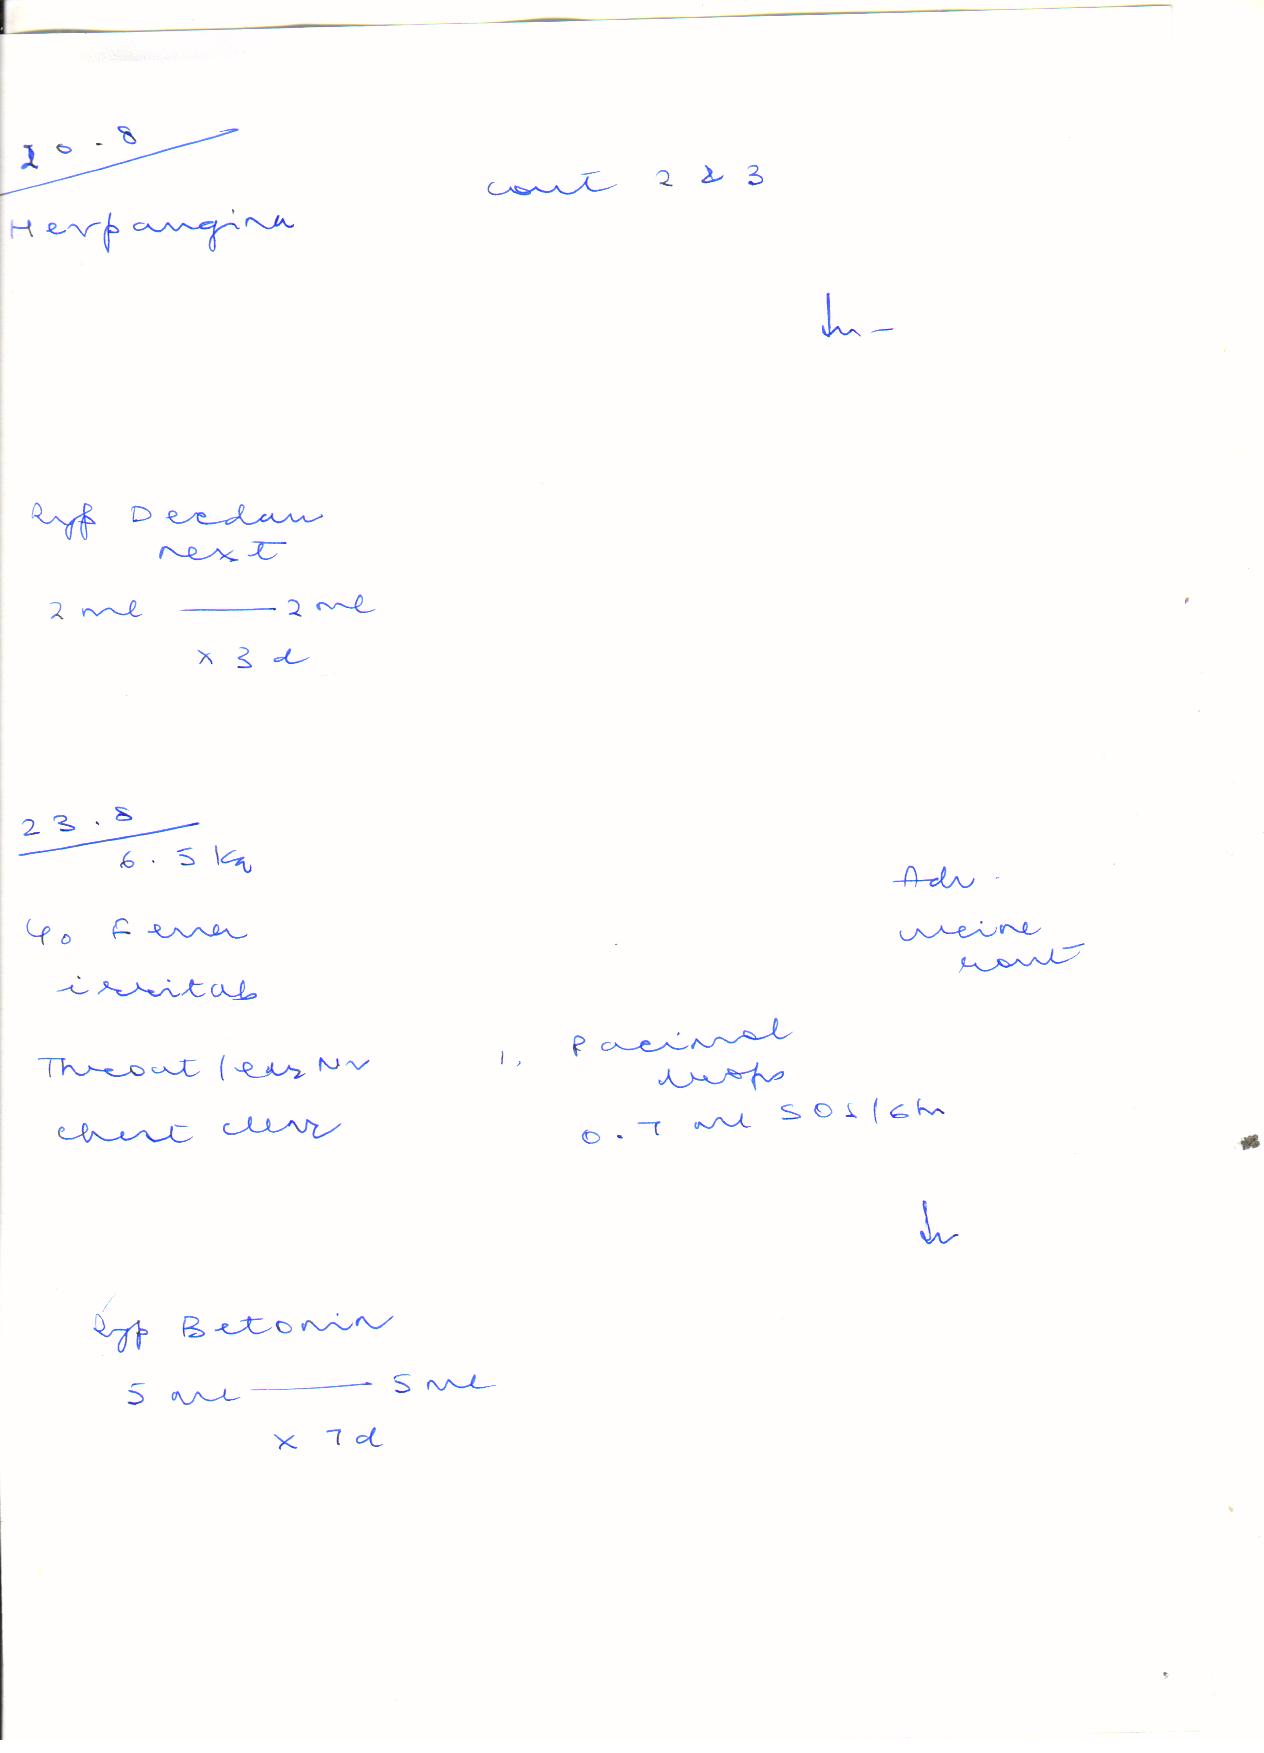 20.8
cont 2 & 3
Herpangina
Syp Decdan
next
2 ml — 2 ml
x 3 d
23.8
6.5 Kg
Adv.
c/o Fever
urine
rout
irritab
Throat / ears NV
1. Pacimol
drops
chest clear
0.7 ml SOS/6h
Syp Betonin
5 ml — 5 ml
x 7d